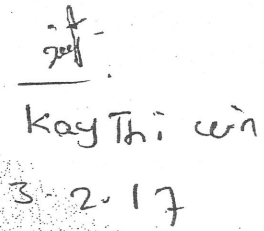 Kay Thi win
3-2.17